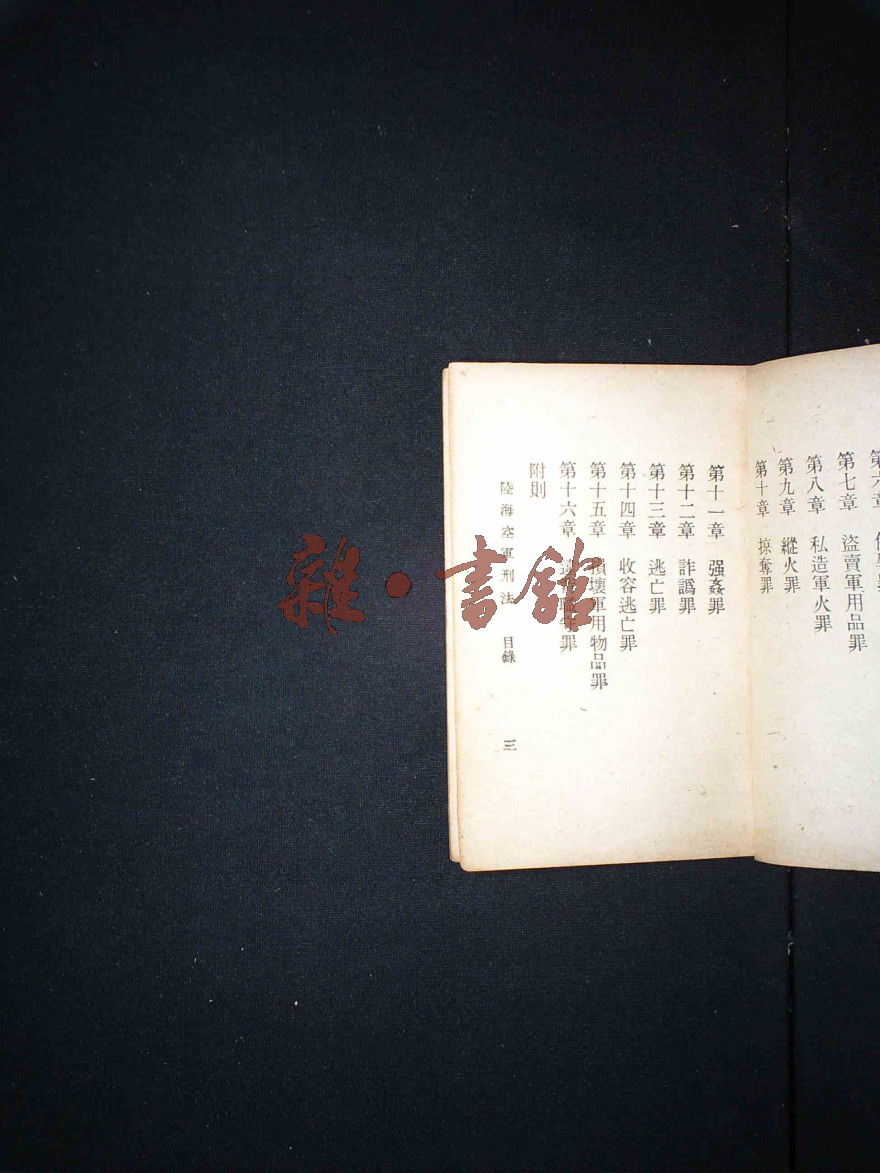 第七章 盜賣軍用品罪
第八章 私造軍火罪
第九章 縱火罪
第十章 掠奪罪
第十一章 强姦罪
第十二章 詐譌罪
第十三章 逃亡罪
第十四章 收容逃亡罪
第十五章 損壞軍用物品罪
第十六章 違背職守罪
附則
陸海空軍刑法 目錄 三
雜·書館